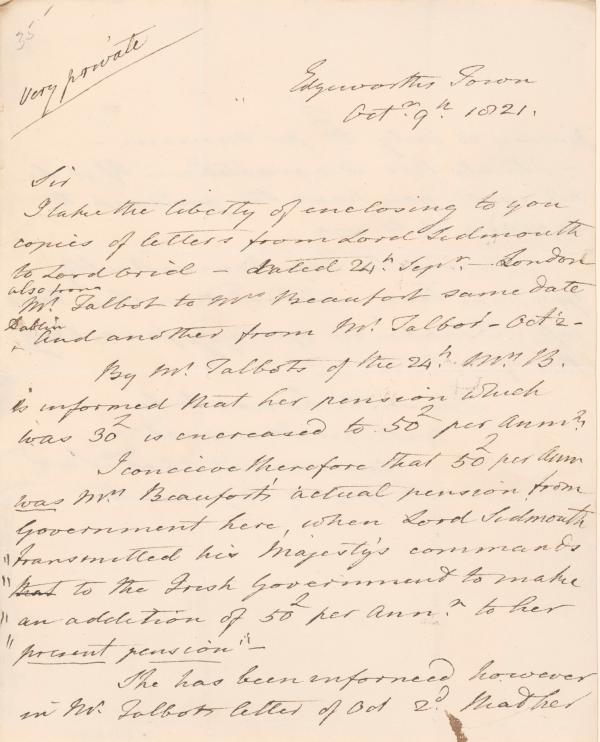 35
Very private
Edgeworths Town
Octr. 9h. 1821.
Sir
I take the liberty of enclosing to you
copies of letters from Lord Sidmouth
to Lord Oriel – dated 24h. Sepr. – London
also from
Mr. Talbot to Mrs Beaufort same date
Dublin
And another from Mr. Talbot – Oct 2 –
By Mr. Talbots of the 24h. Mrs B.
is informed that her pension which
was 30£ is encreased to 50£ per Annm.
I concieve therefore that 50£ per Ann
was Mrs Beaufort's actual pension from
Government here, when Lord Sidmouth
"transmitted his Majesty's commands
" that to the Irish Government to make
" an addition of 50£ per Annm. to her
" present pension" –
She has been informed however
in Mr. Talbots letter of Oct 2d. that her